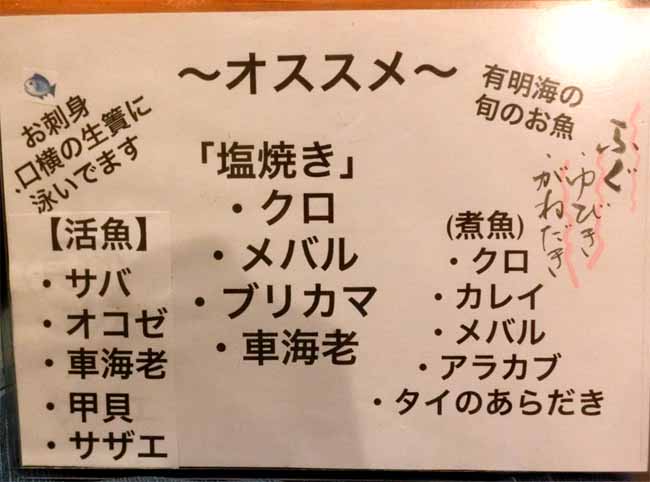 ～オススメ～
お刺身
口横の生簀に
泳いでます
【活魚】
・サバ
・オコゼ
・車海老
・甲貝
・サザエ
「塩焼き」
・クロ
・メバル
・ブリカマ
・車海老
有明海の
旬のお魚
ふぐ
・ゆびき
・がねだき
(煮魚)
・クロ
・カレイ
・メバル
・アラカブ
・タイのあらだき